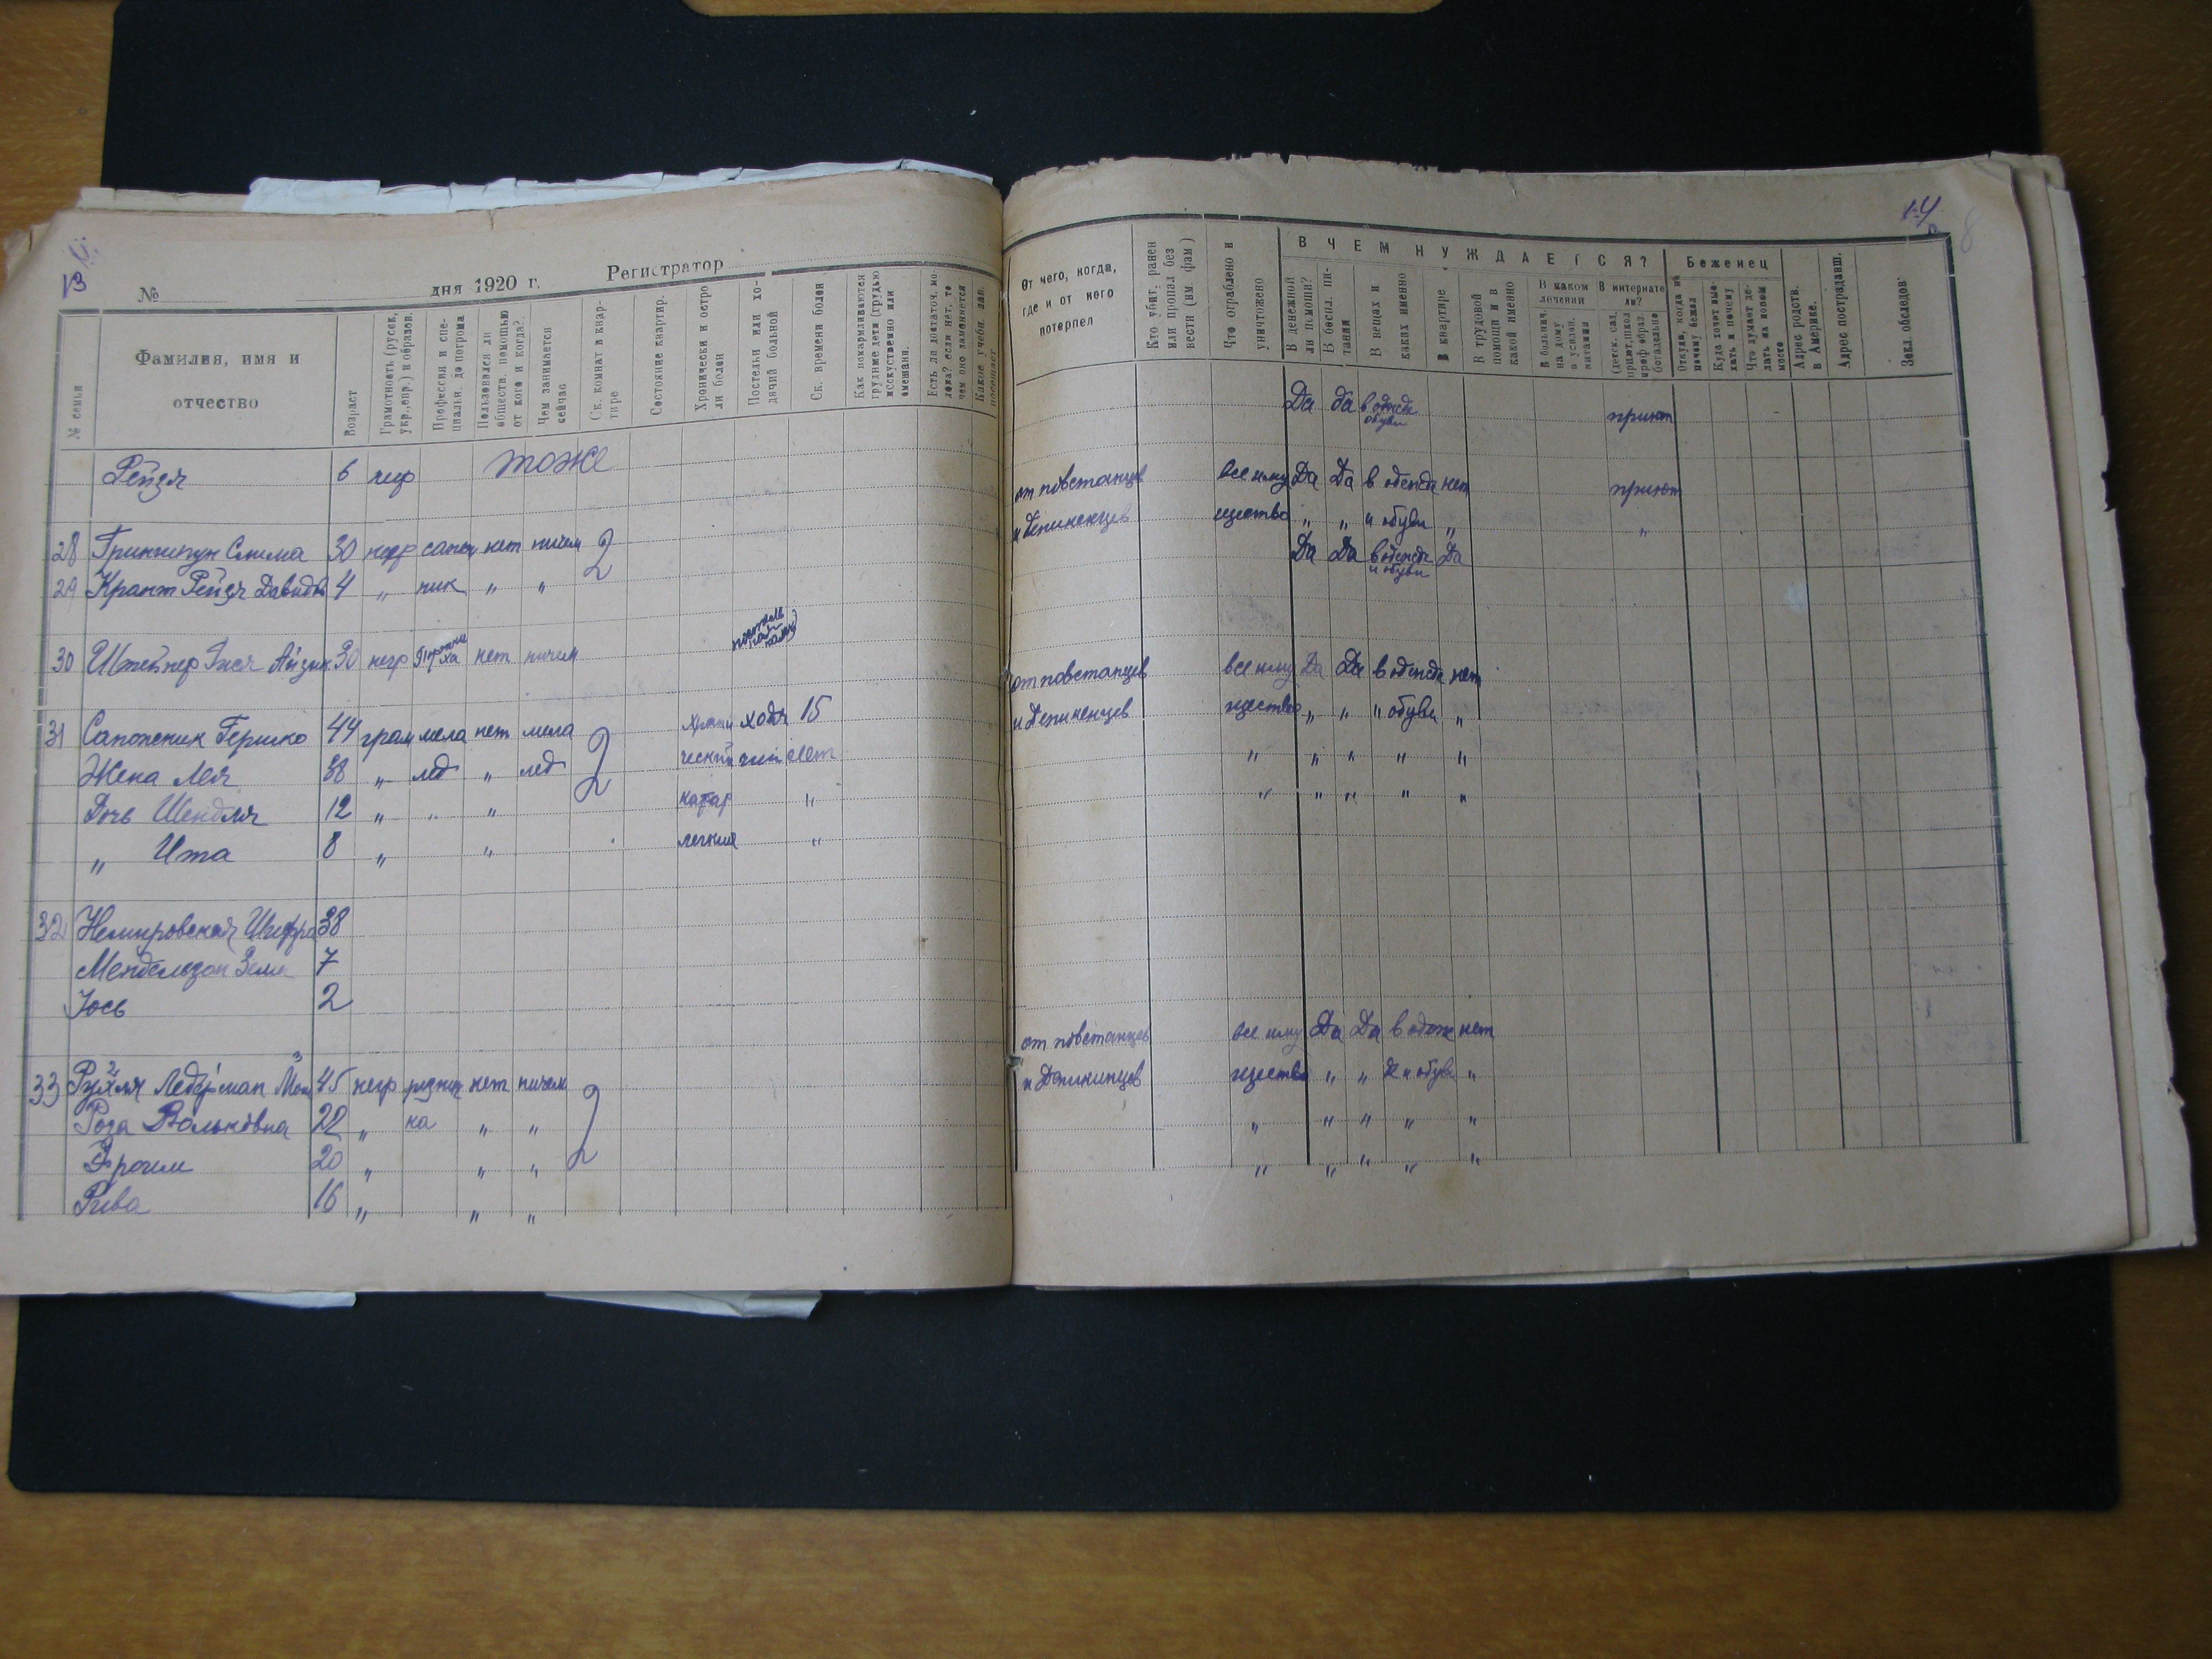 13
№ дня 1920 г. Регистратор
№ семьи
Фамилия, имя и отчество
Возраст
Грамотность (русск, укр.,евр.) и образов.
Профессия и специальн. до погрома
Пользовался ли обществ. помощью от кого и когда?.
Чем занимается сейчас
Ск. комнат в квартире
Состояние квартир.
Хронически и остро ли болен
Постельн или ходячий больной
Ск. времени болен
Как вскармливаются грудные дети (грудью исскуственно или смешанн.
Есть ли достаточ. молока? если нет, то чем оно заменяется
Какое учебн. зав. посещает
Рейзя 6 негр тоже
28 Слима 30 негр нет ничем 2
29 Крант Рейзя Давидов 4 „ ник „ „
30 Штейнер 30 негр нет ничем
31 Сапожник Гершко 44 грам мела нет мела 2 ходя 15
Жена Лея 38 „ мед „ мед ческий чий лет
Дочь Шендля 12 „ „ „ катар „
„ Ита 8 „ „ легких „
32 Немировская Шифра 38
Мендельзон 7
Иось 2
33 Рухля Ледерман 45 негр резни нет ничем 2
Роза Вольковна 22 „ ка „ „
Фроим 20 „ „ „
Рива 16 „ „ „
14
8
От чего, когда, где и от кого потерпел
Кто убит, ранен или пропал без вести (им. фам)
Что ограблено и уничтожено
В ЧЕМ НУЖДАЕТСЯ?
В денежной ли помощи?
В беспл. питании
В вещах и каких именно
В квартире
В трудовой помощи и в какой именно
В каком лечении
В больничн. на дому в усилен. питании
В интернате ли?
(детск. сад, приют, школ проф образ. богадельна
Беженец
Откуда, когда и почему бежал
Куда хочет выехать и почему
Что думает делать на новом месте
Адрес родств. в Америке.
Адрес пострадавш.
Закл. обследов.
Да да в одежде обуви приют
от повстанцев все иму Да Да в одежде нет приют
и Деникенцев щество „ „ и обуви „ „
Да Да в одежде и обуви Да
от повстанцев все иму Да Да в одежде нет
и Деникенцев щество „ „ „ обуви „
„ „ „ „ „
„ „ „ „ „
от повстанцев все иму Да Да в одеж нет
и Деникинцев щество „ „ де и обуви „
„ „ „ „ „
„ „ „ „ „